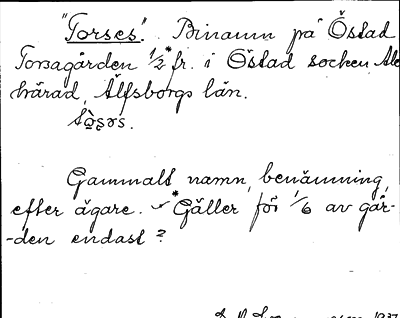 "Torses". Binamn på Östad
Torsagården 1/2* fr. i Östad socken, Ale
härad, Älfsborgs län.
Gammalt namn, benämning,
efter ägare. *Gäller för 1/6 av går-
-den endast?